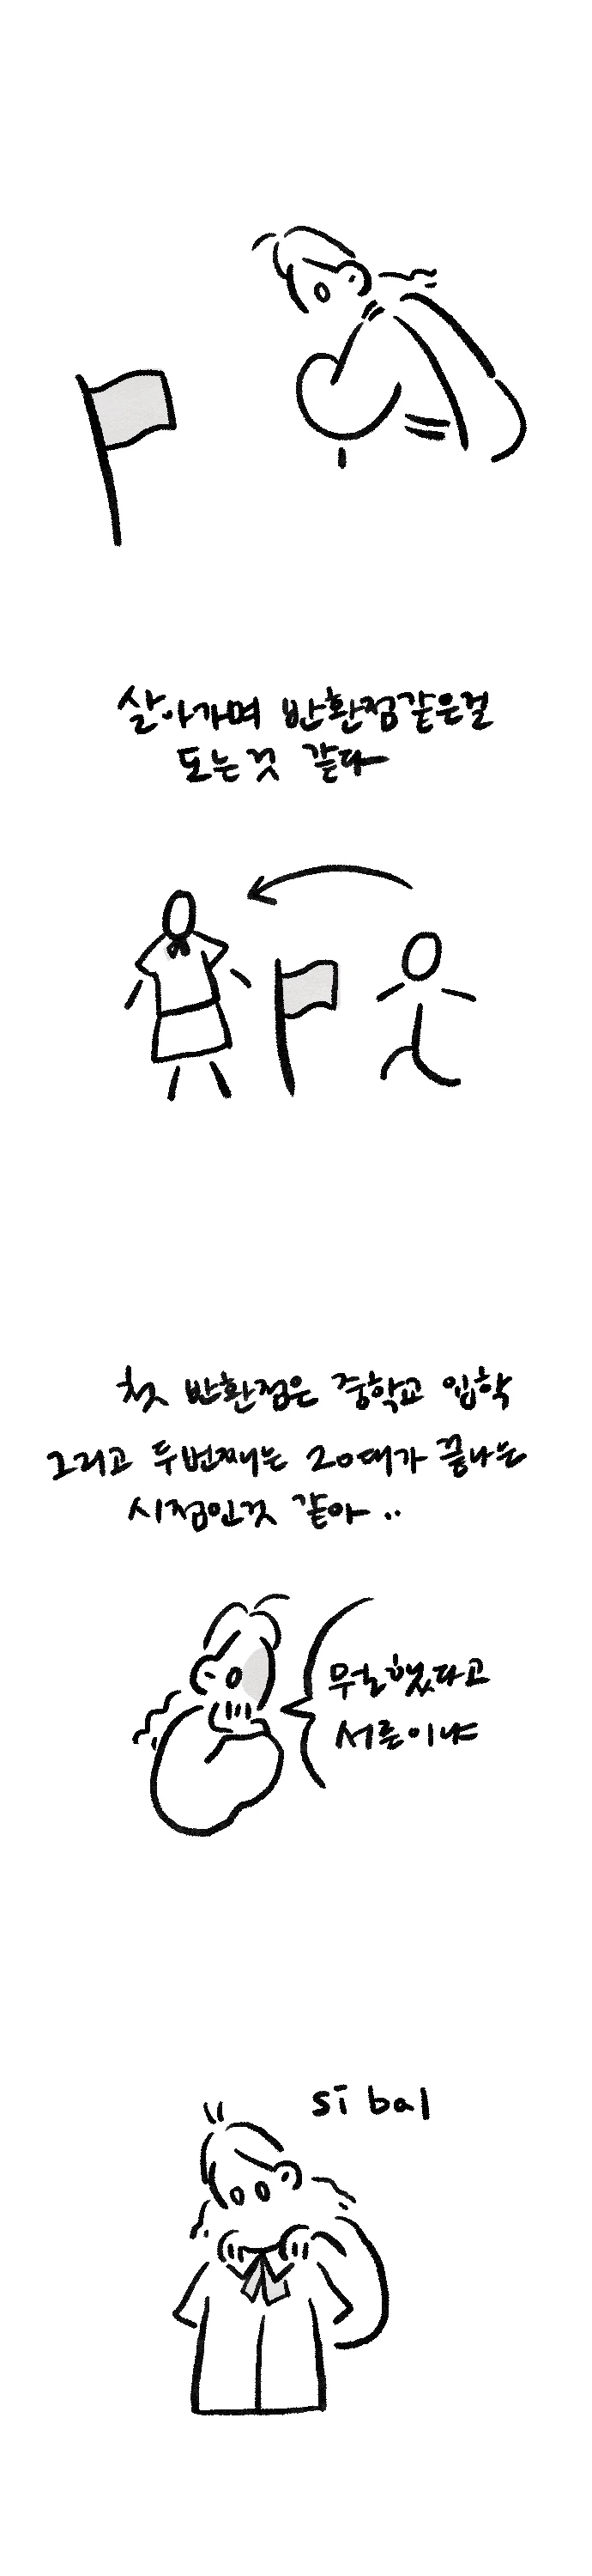 살아가며 반환점같은걸
도는것 같다
첫 반환점은 중학교 입학
그리고 두번째는 20대가 끝나는
시점인것 같아..
뭐했다고
서른이냐
si bal